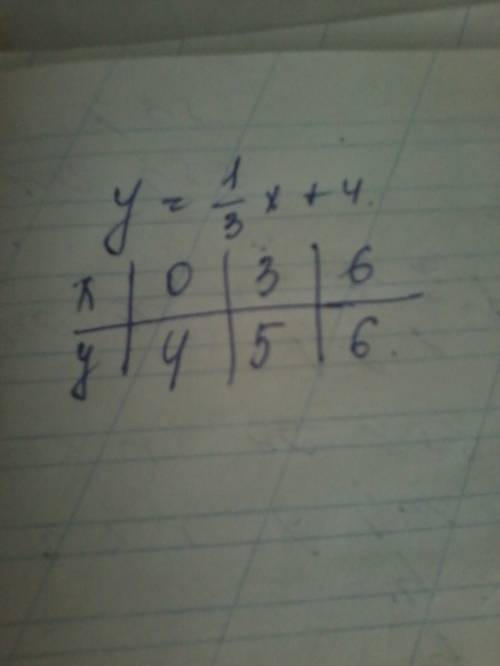 y = 1/3 x + 4.
x | 0 | 3 | 6
y | 4 | 5 | 6.